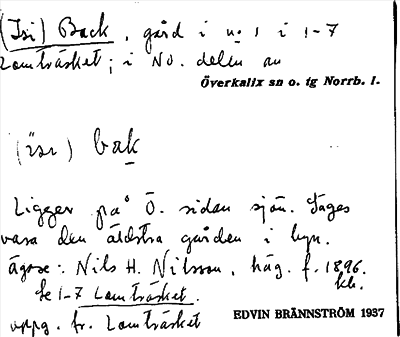 (Isi) Back, gård i no 1 i 1-7
Lomträsket; i NO. delen av
Överkalix sn o. tg Norrb. l.
(ìsi) bak
Ligger på Ö. sidan sjön. Säges
vara den äldsta gården i byn.
ägare: Nils H. Nilsson, häg. f. 1896.
kb.
Se 1-7 Lomträsket.
uppg. fr. Lomträsket
EDVIN BRÄNNSTRÖM 1937